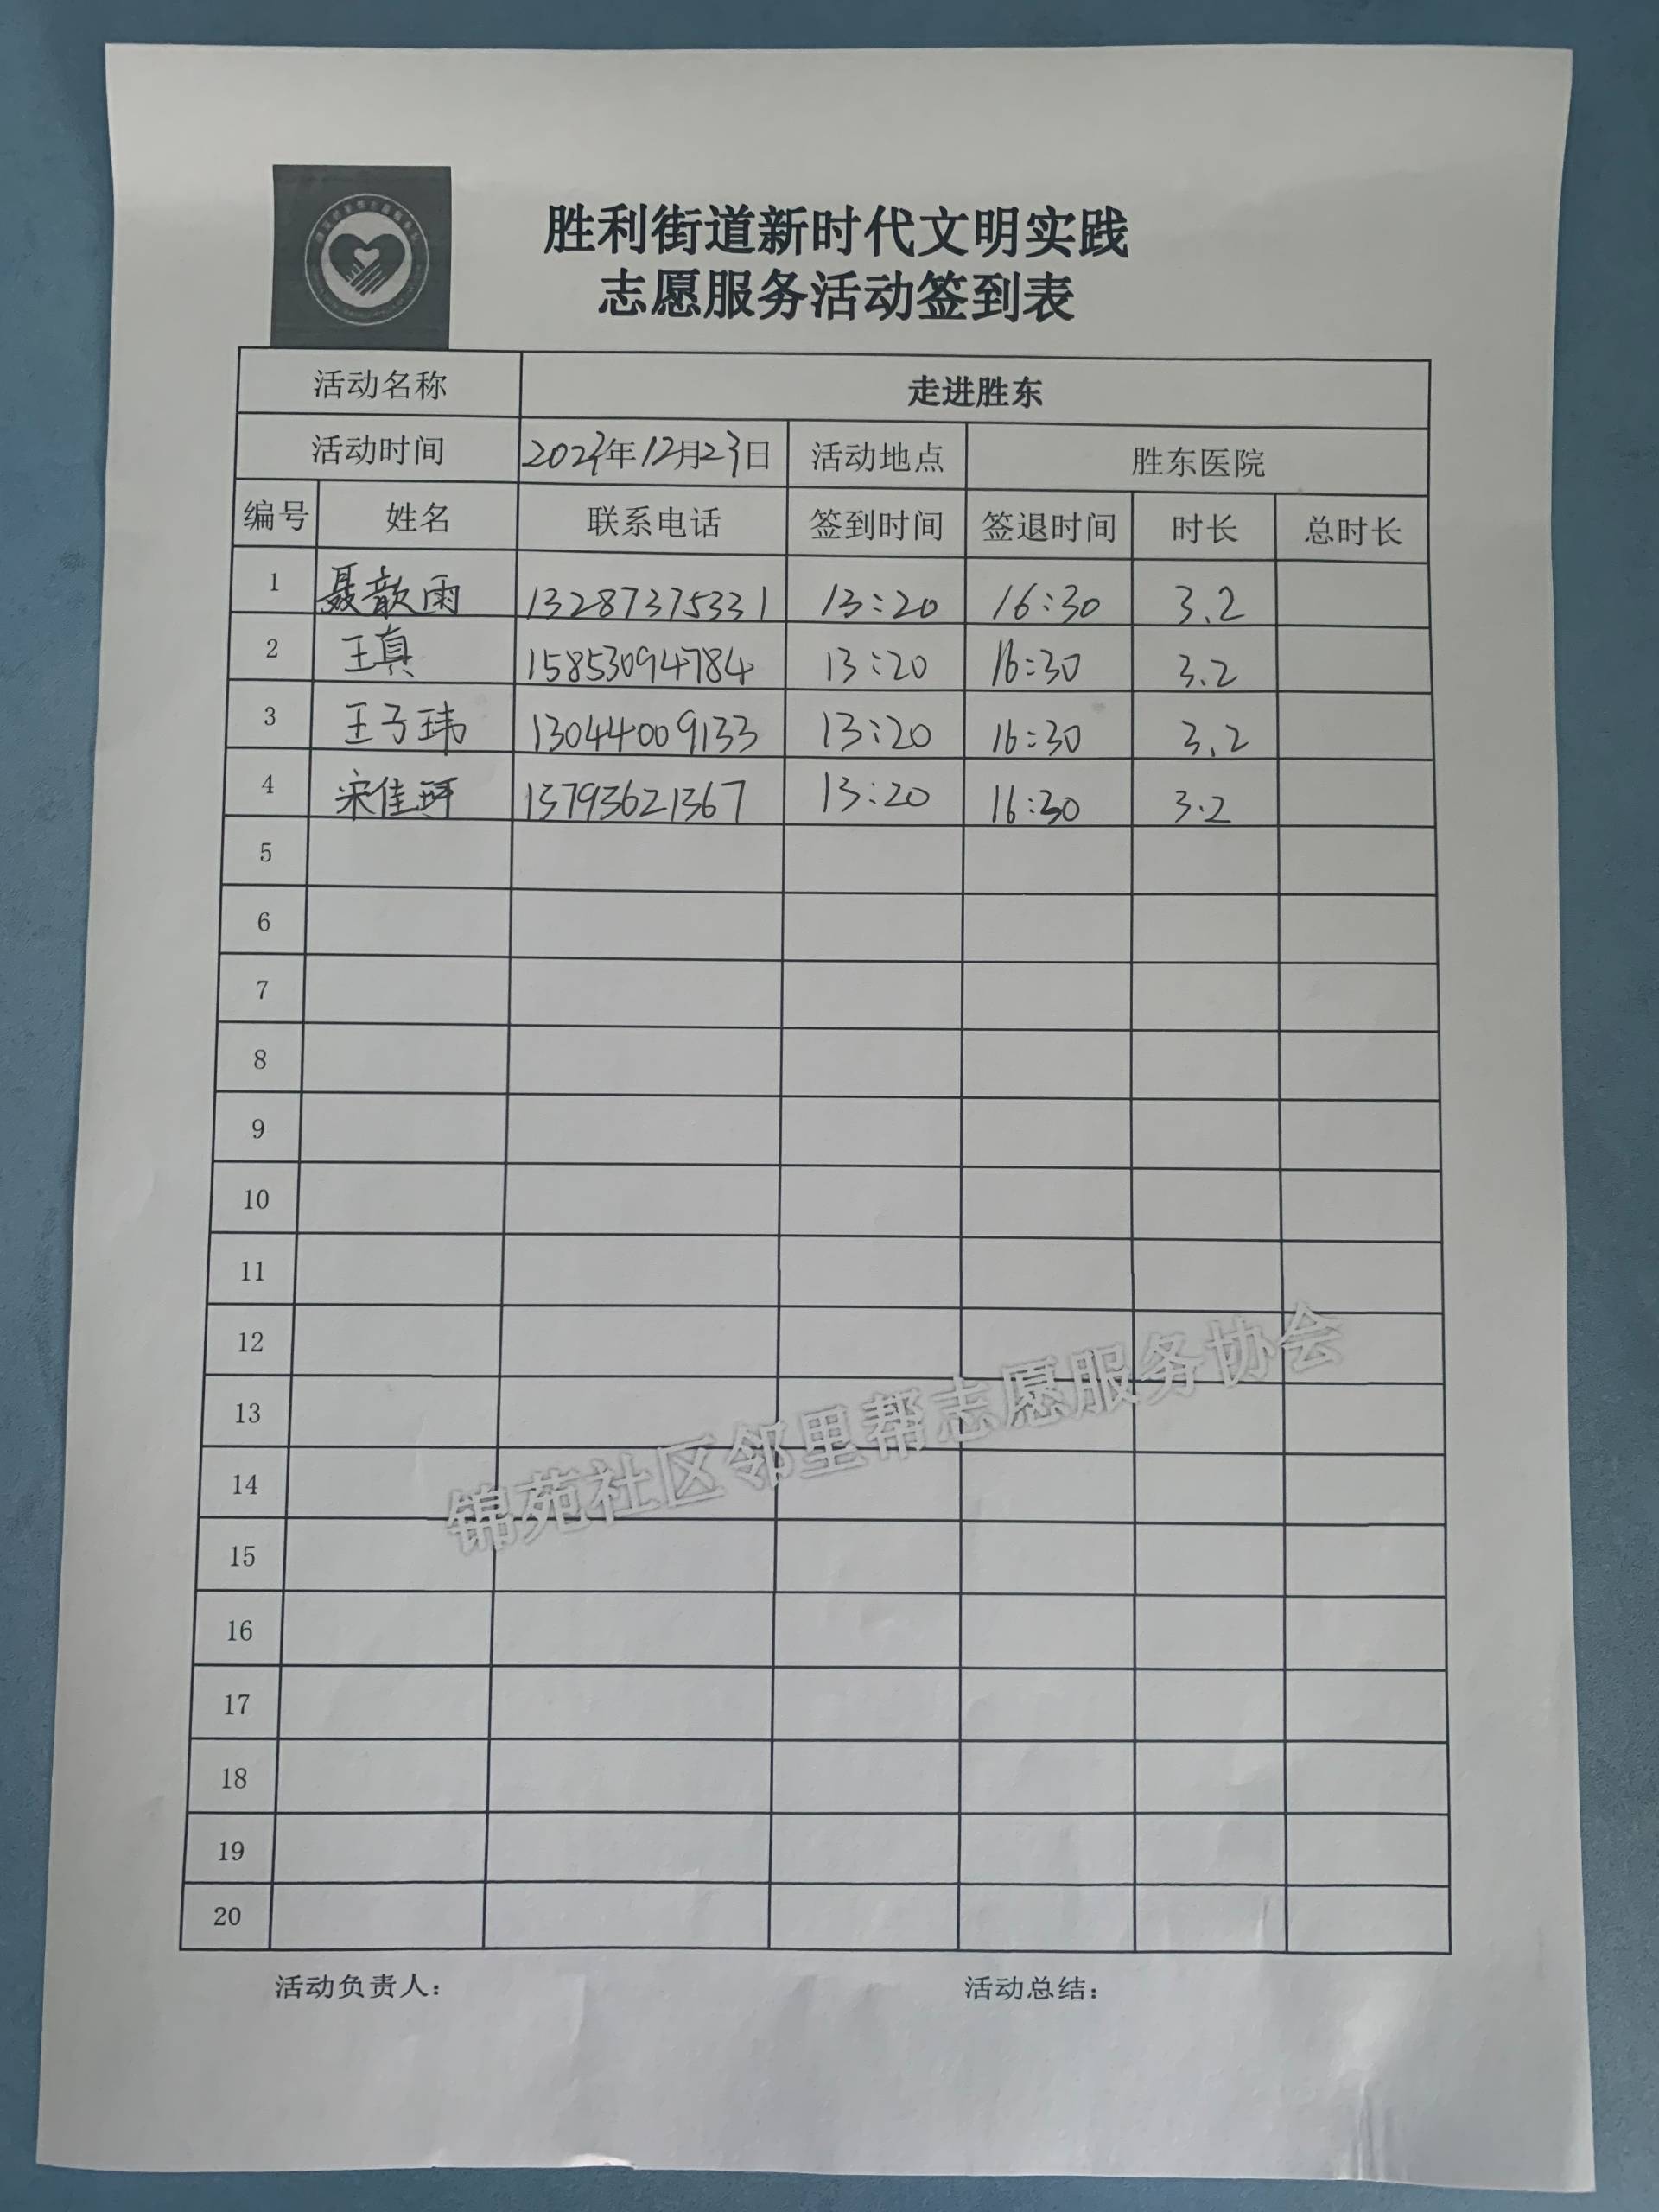 胜利街道新时代文明实践
志愿服务活动签到表
活动名称 走进胜东
活动时间 2023年12月23日 活动地点 胜东医院
编号 姓名 联系电话 签到时间 签退时间 时长 总时长
1 聂歆雨 13287375331 13:20 16:30 3.2
2 王真 15853094784 13:20 16:30 3.2
3 王子玮 13044009133 13:20 16:30 3.2
4 宋佳珂 13793621367 13:20 16:30 3.2
5
6
7
8
9
10
11
12
13
14
15
16
17
18
19
20
锦苑社区邻里帮志愿服务协会
活动负责人： 活动总结：